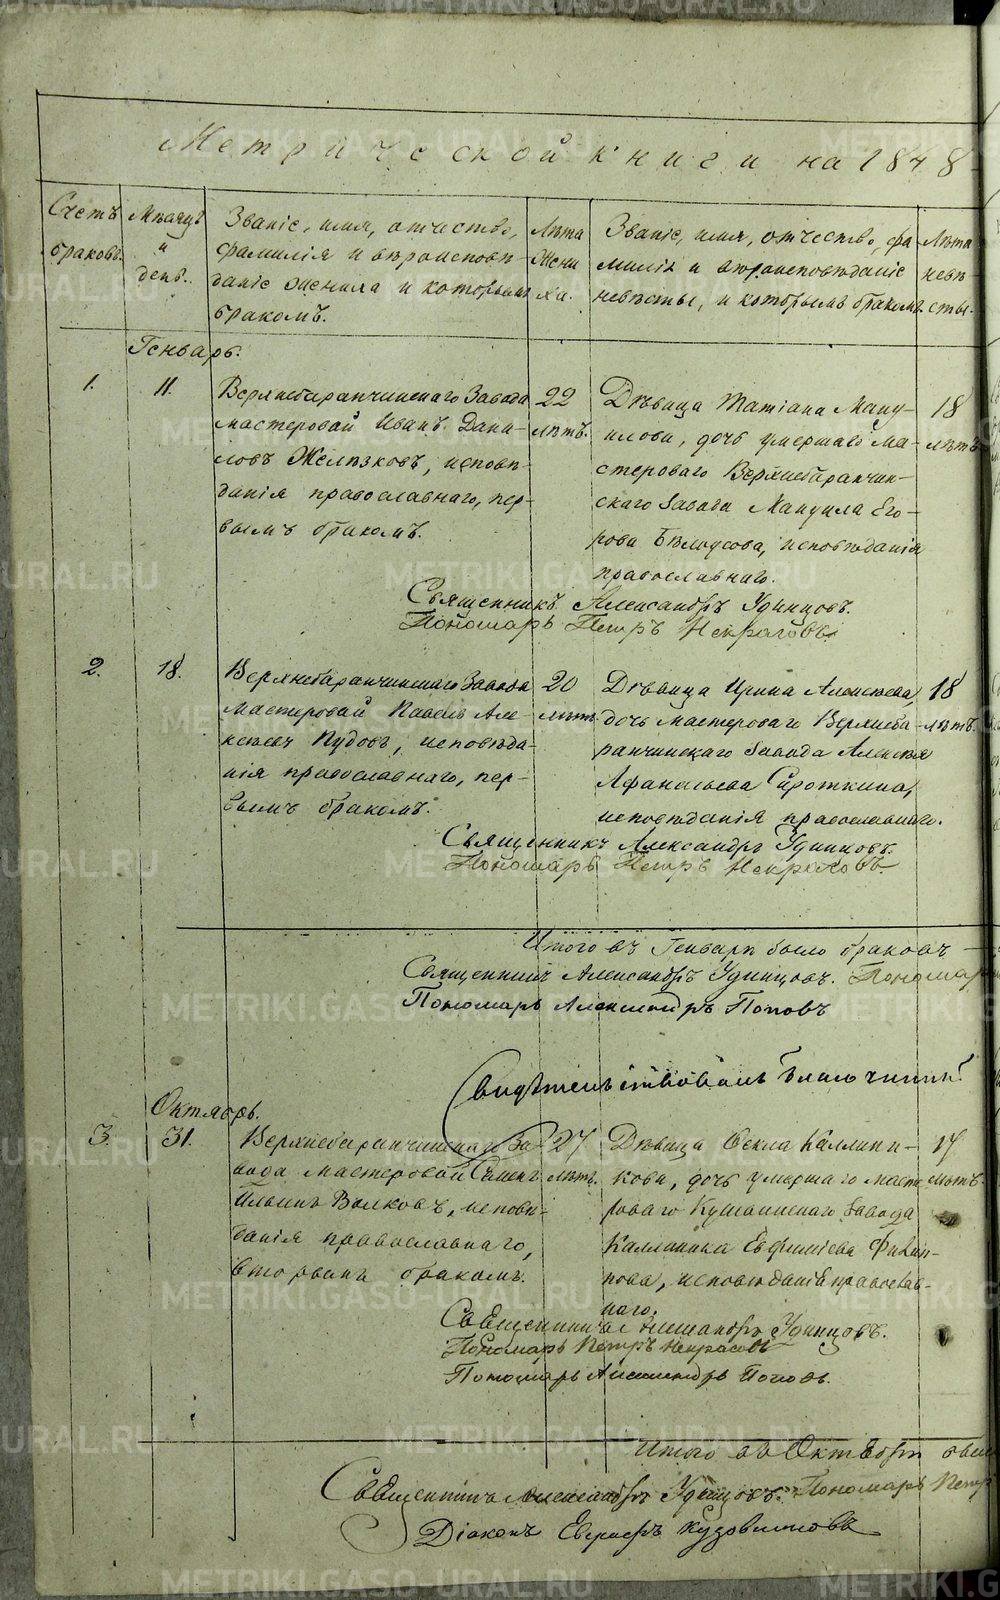 Метрической книги на 1848
Счетъ браковъ.
Мѣсяцъ и день.
Званіе, имя, отчество, фамилія и вѣроисповѣданіе жениха и которымъ бракомъ.
Лѣта жениха.
Званіе, имя, отчество, фамилія и вѣроисповѣданіе невѣсты, и которымъ бракомъ.
Лѣта невѣсты.
Генварь.
1. 11.
Верхнебаранчинскаго Завода
мастеровой Иванъ Дани-
ловъ Желѣзковъ, исповѣ-
данія православнаго, пер-
вымъ бракомъ.
22
лѣтъ.
Дѣвица Татіана Ману-
илова, дочь умершаго ма-
стероваго Верхнебаранчин-
скаго Завода Мануила Его-
рова Бѣлоусова, исповѣданія
православнаго.
18
лѣтъ
Священникъ Александръ Удинцовъ.
Пономарь Петръ Некрасовъ
2. 18.
Верхнебаранчинскаго Завода
мастеровой Павелъ Але-
ксѣевъ Пудовъ, исповѣда-
нія православнаго, пер-
вымъ бракомъ.
20
лѣтъ.
Дѣвица Ирина Алексѣева,
дочь мастероваго Верхнеба-
ранчинскаго Завода Алексѣя
Афанасьева Сироткина,
исповѣданія православнаго.
18
лѣтъ.
Священникъ Александръ Удинцовъ.
Пономарь Петръ Некрасовъ.
Итого въ Генварѣ было браковъ
Священникъ Александръ Удинцовъ. Пономарь
Пономарь Александръ Поповъ
Свидѣтельствовалъ Благочинный
Октябрь.
3. 31.
Верхнебаранчинскаго За-
вода мастеровой Симеонъ
Ильинъ Волковъ, исповѣ-
данія православнаго,
вторымъ бракомъ.
27
лѣтъ.
Дѣвица Ѳекла Каллини-
кова, дочь умершаго масте
роваго Кушвинскаго Завода
Каллиника Евфиміева Филип-
пова, исповѣданія православ-
наго.
17
лѣтъ.
Священникъ Александръ Удинцовъ.
Пономарь Петръ Некрасовъ
Пономарь Александръ Поповъ.
Итого въ Октябрѣ
Священникъ Александръ Удинцовъ. Пономарь Петръ
Діаконъ